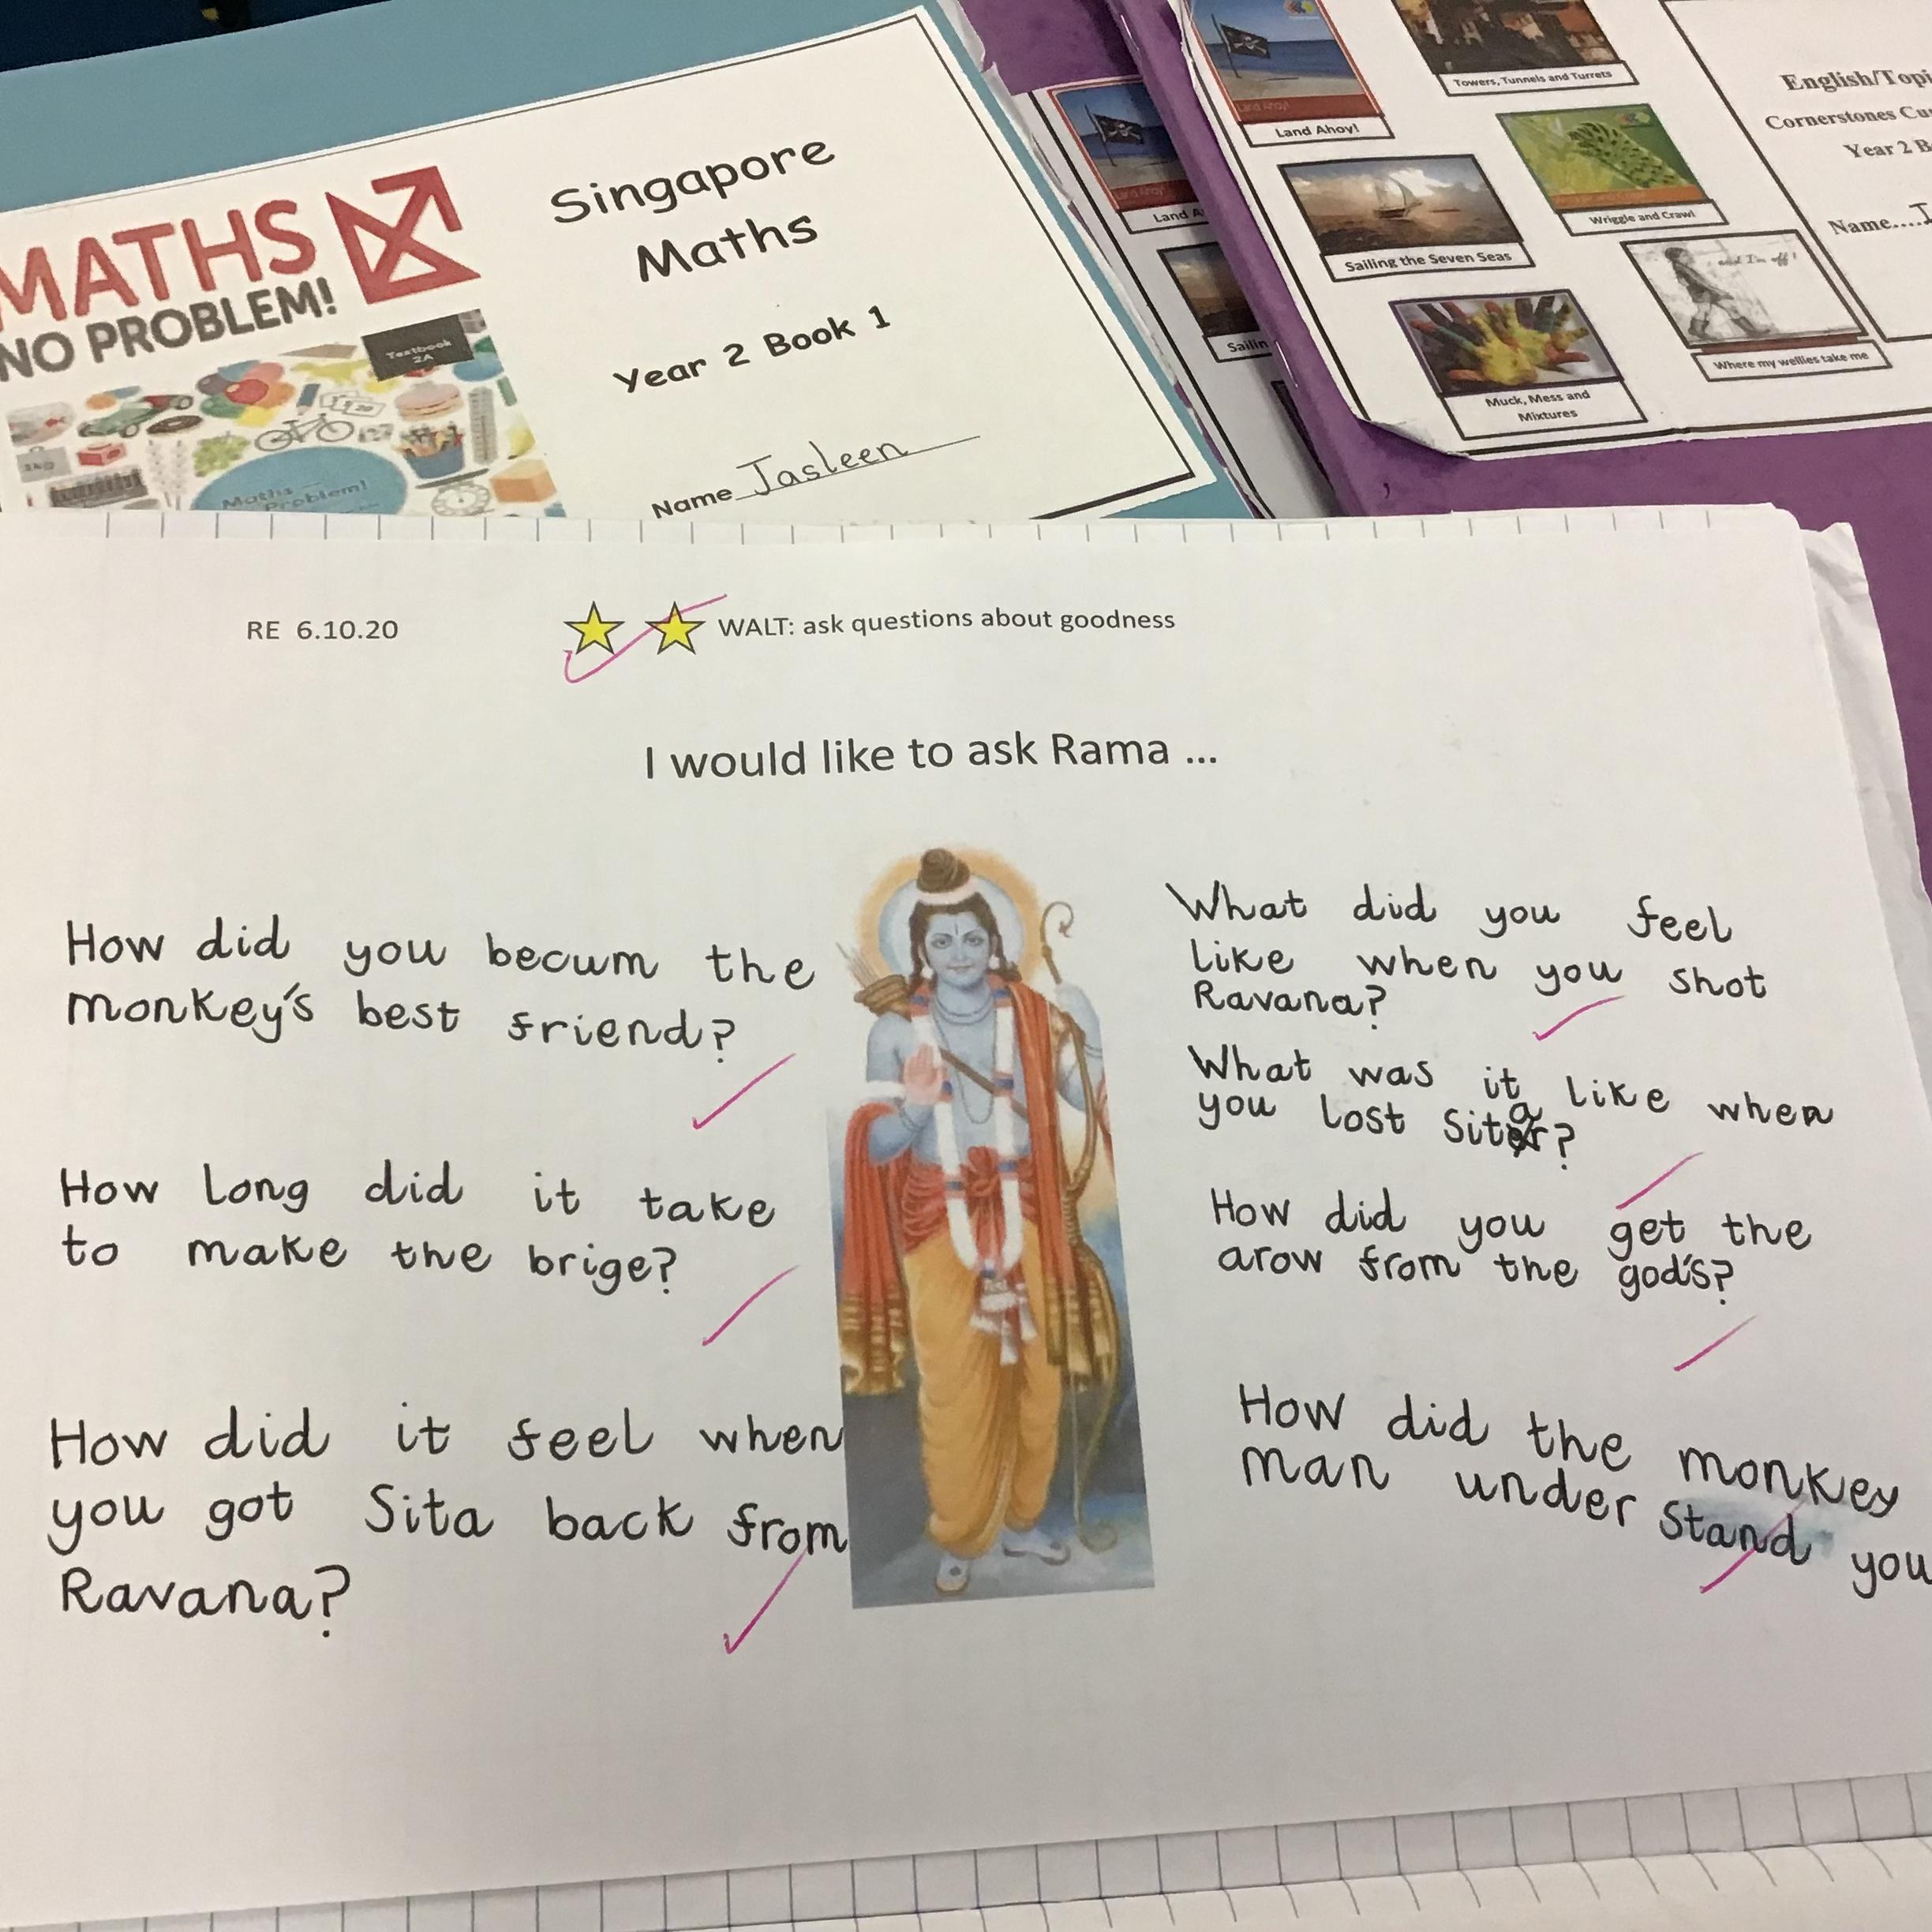 MATHS
NO PROBLEM!
Textbook
2A
Maths
Problem!
Singapore
Maths
Year 2 Book 1
Name Jasleen
Land A
Sailin
Land Ahoy!
Land Ahoy!
Towers, Tunnels and Turrets
Sailing the Seven Seas
Wriggle and Crawl
Muck, Mess and
Mixtures
and I'm off!
Where my wellies take me
English/Topi
Cornerstones Cu
Year 2 B
Name....J
RE 6.10.20
WALT: ask questions about goodness
I would like to ask Rama ...
How did you becum the
monkey's best friend?
How long did it take
to make the brige?
How did it feel when
you got Sita back from
Ravana?
What did you feel
like when you shot
Ravana?
What was it like when
you lost Sita?
How did you get the
arow from the god's?
How did the monkey
man under Stand you